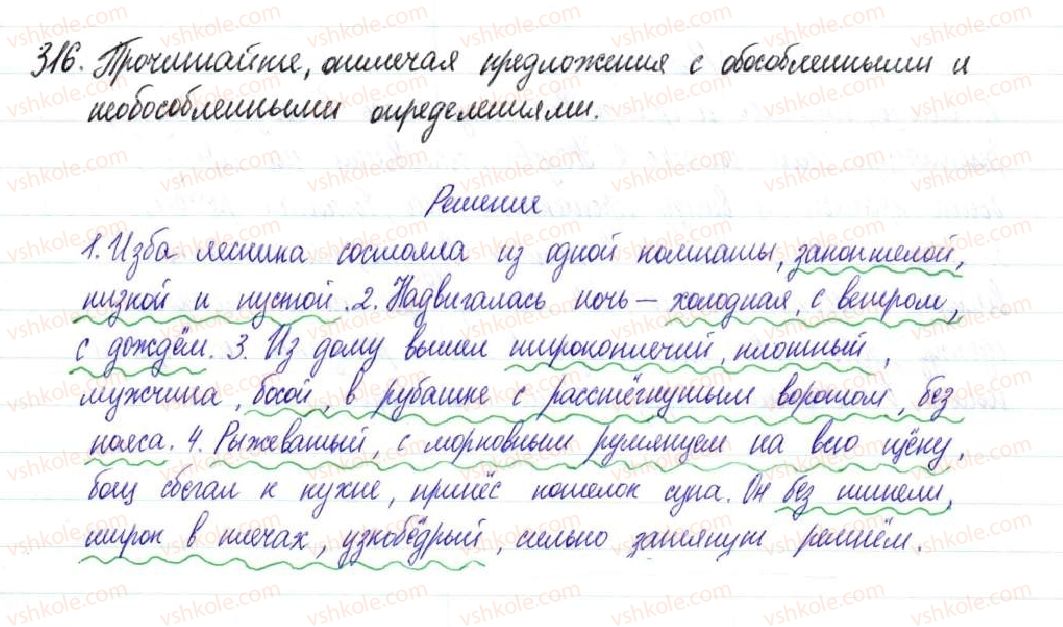 316. Прочитайте, отмечая предложения с обособленными и
необособленными определениями.
Решение
1. Изба лесника состояла из одной комнаты, закоптелой,
низкой и пустой. 2. Надвигалась ночь – холодная, с ветром,
с дождём. 3. Из дому вышел широкоплечий, плотный,
мужчина, босой, в рубашке с расстёгнутым воротом, без
пояса. 4. Рыжеватый, с морковным румянцем на всю щёку,
боец сбегал к кухне, принёс котелок супа. Он без шинели,
широк в плечах, узкобёдрый, сильно затянут ремнём.
vshkole.com